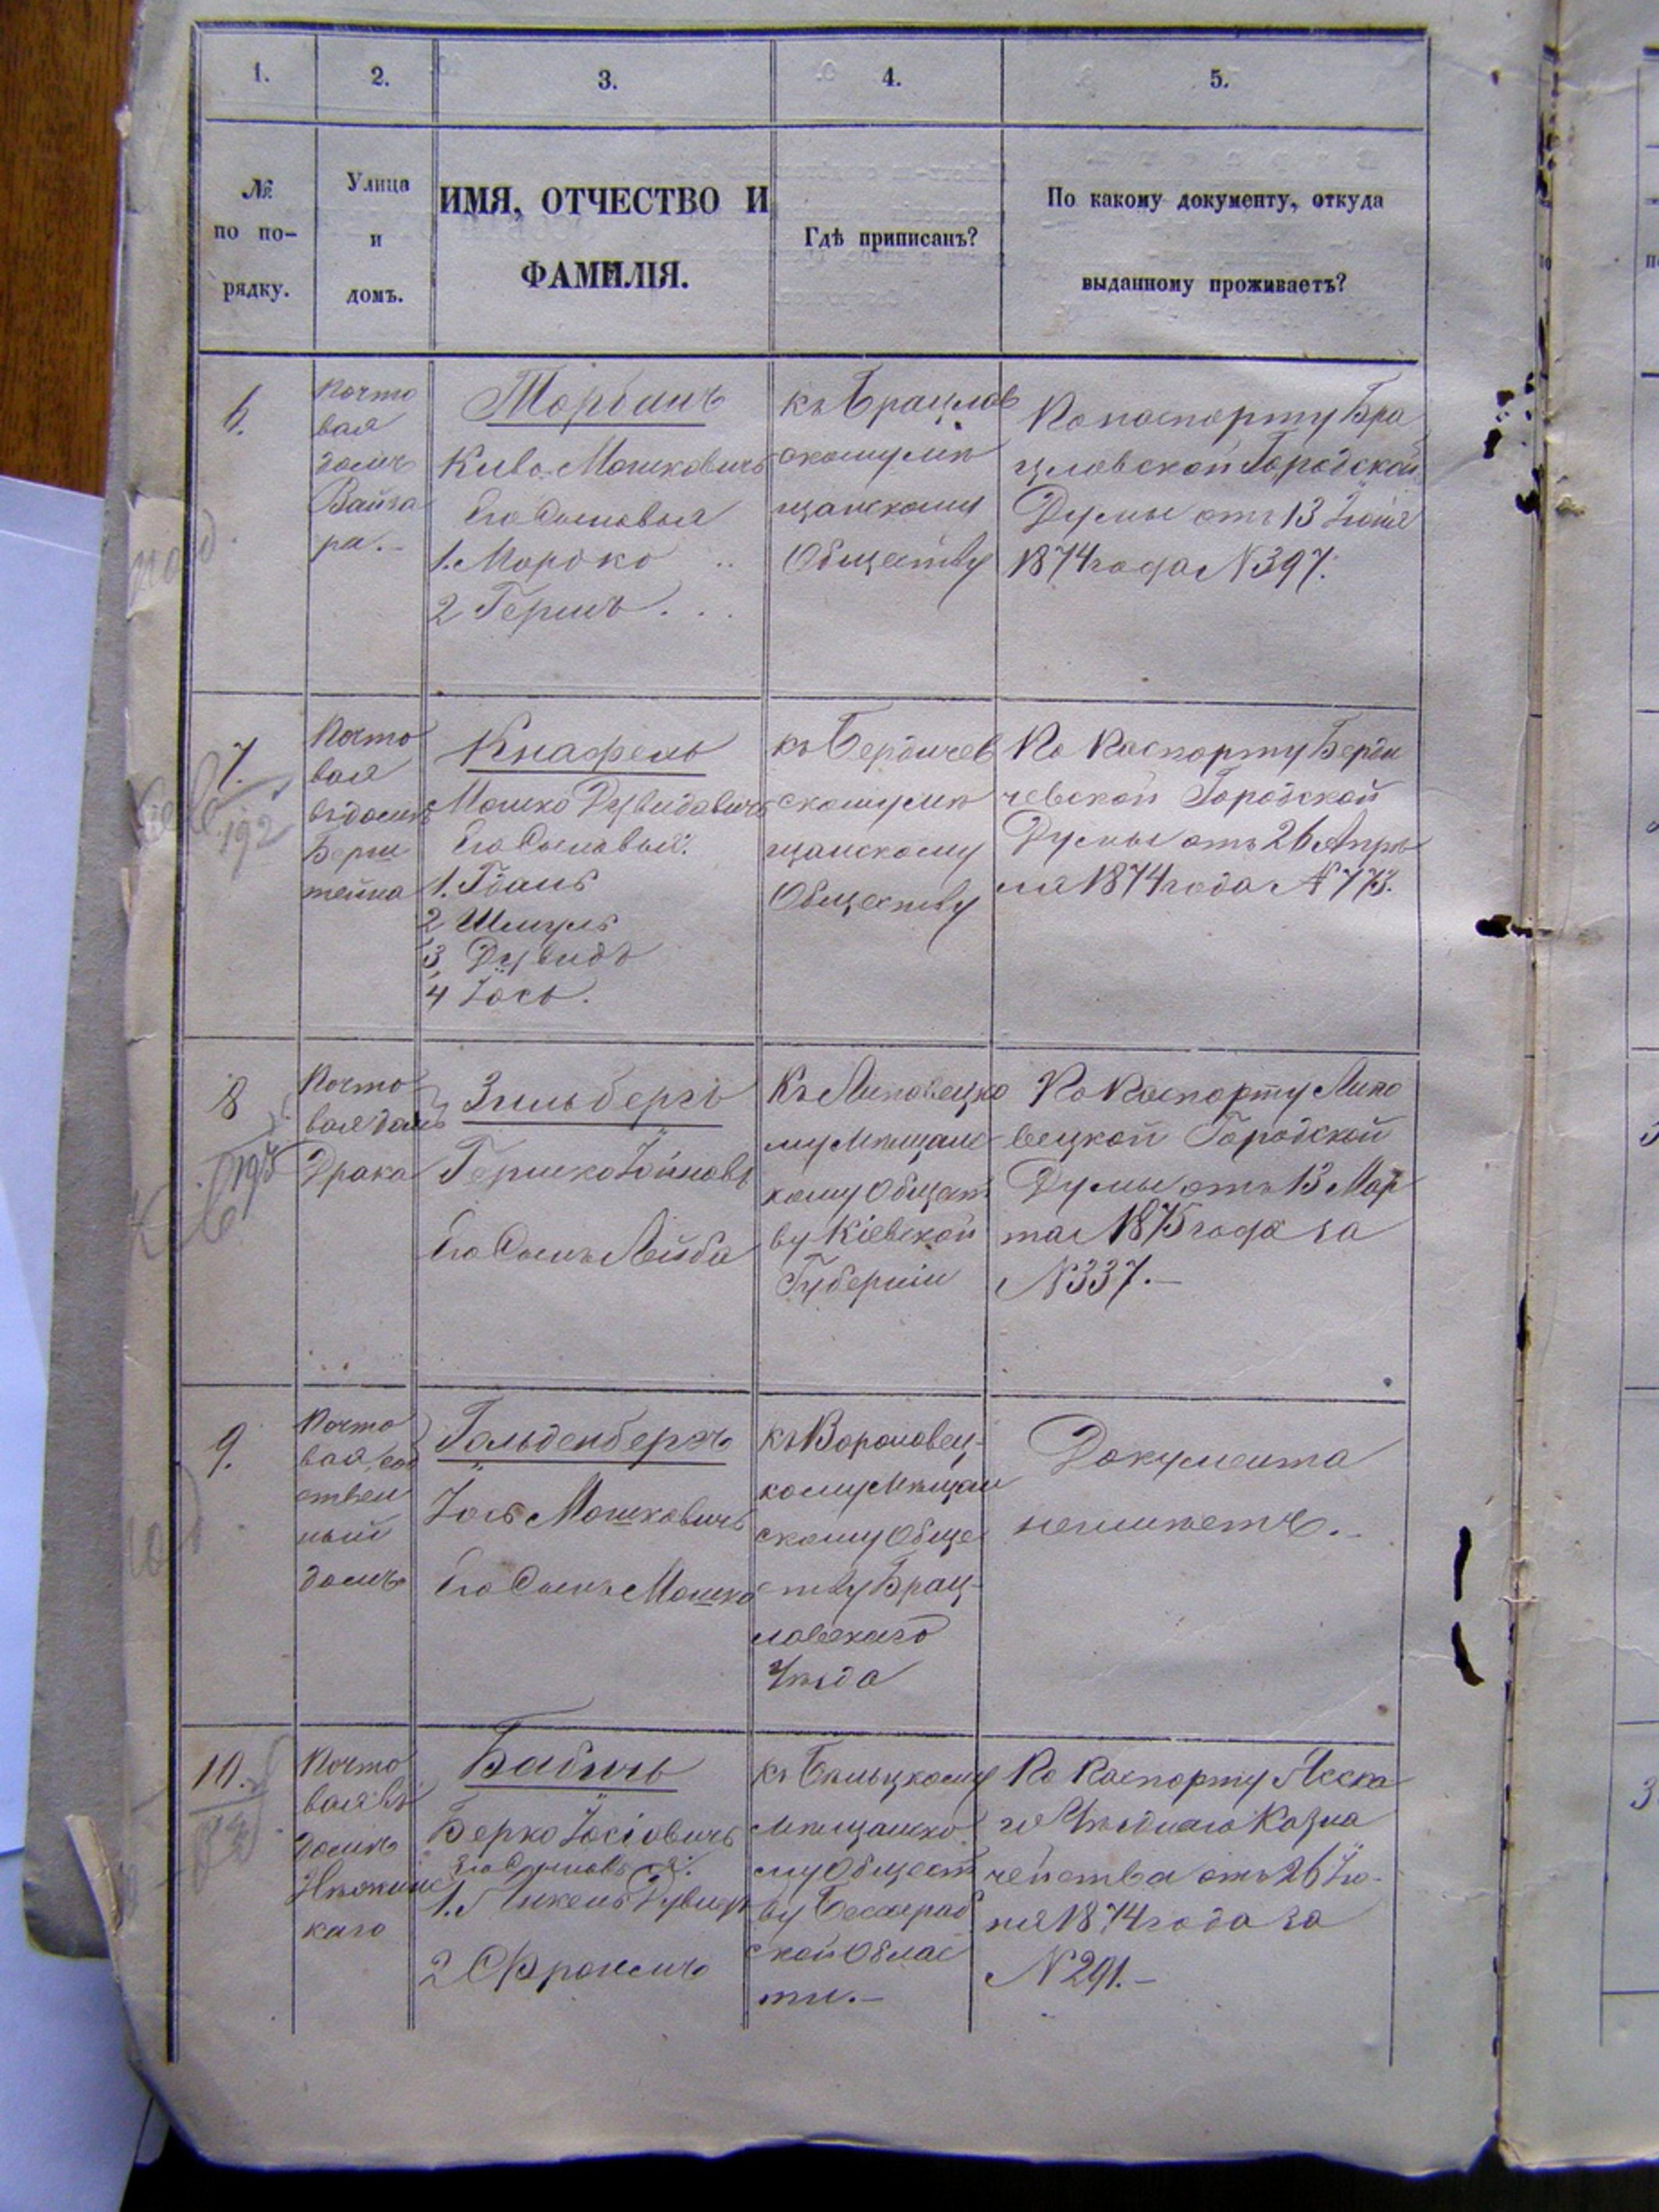 1.
2.
3.
4.
5.
№
по по-
рядку.
Улица
и
домъ.
ИМЯ, ОТЧЕСТВО И
ФАМИЛІЯ.
Гдѣ приписанъ?
По какому документу, откуда
выданному проживаетъ?
6.
Почто
вая
домъ
Вайга
ра.
Киво Мошковичъ
Его Сыновья
1. Мордко
2 Гершъ
къ Брацлав
скому мѣ
щанскому
Обществу
По паспорту Бра
цлавской Городской
Думы отъ 13 Іюня
1874 года N 397.
7.
192
Почто
вая
въ домѣ
Берш
тейна
Кнафель
Мошко Дувидовичъ
Его Сыновья:
1. Гдаль
2 Шмуль
3 Дувидъ
4 Іось.
къ Бердичев
скому мѣ
щанскому
Обществу
По Паспорту Берди
чевской Городской
Думы отъ 26 Апрѣ
ля 1874 года N 773.
8
Почто
вая домъ
Драка
Зильбергъ
Гершко
Его Сынъ Лейба
Къ Липовецко
му Мѣщанс
кому Общест
ву Кіевской
Губерніи
По Паспорту Липо
вецкой Городской
Думы отъ 13 Мар
та 1875 года за
N 337.—
9.
Почто
вая соб
ствен
ный
домъ
Гольденбергъ
Іось Мошковичъ
Его Сынъ Мошко
къ Вороновец-
кому Мѣщан
скому Обще
ству Брац-
лавскаго
Уѣзда
Документа
неимѣетъ.—
10.
Почто
вая въ
домѣ
каго
Бабичъ
Берко Іосіовичъ
Его Сыновья:
2 Фроимъ
къ Бѣльцкому
Мѣщанско
му Общест
ву Бессараб
ской Облас
ти.—
По Паспорту Ясска
го Уѣзднаго Казна
чейства отъ 26 Ію-
ня 1874 года за
N 291.—